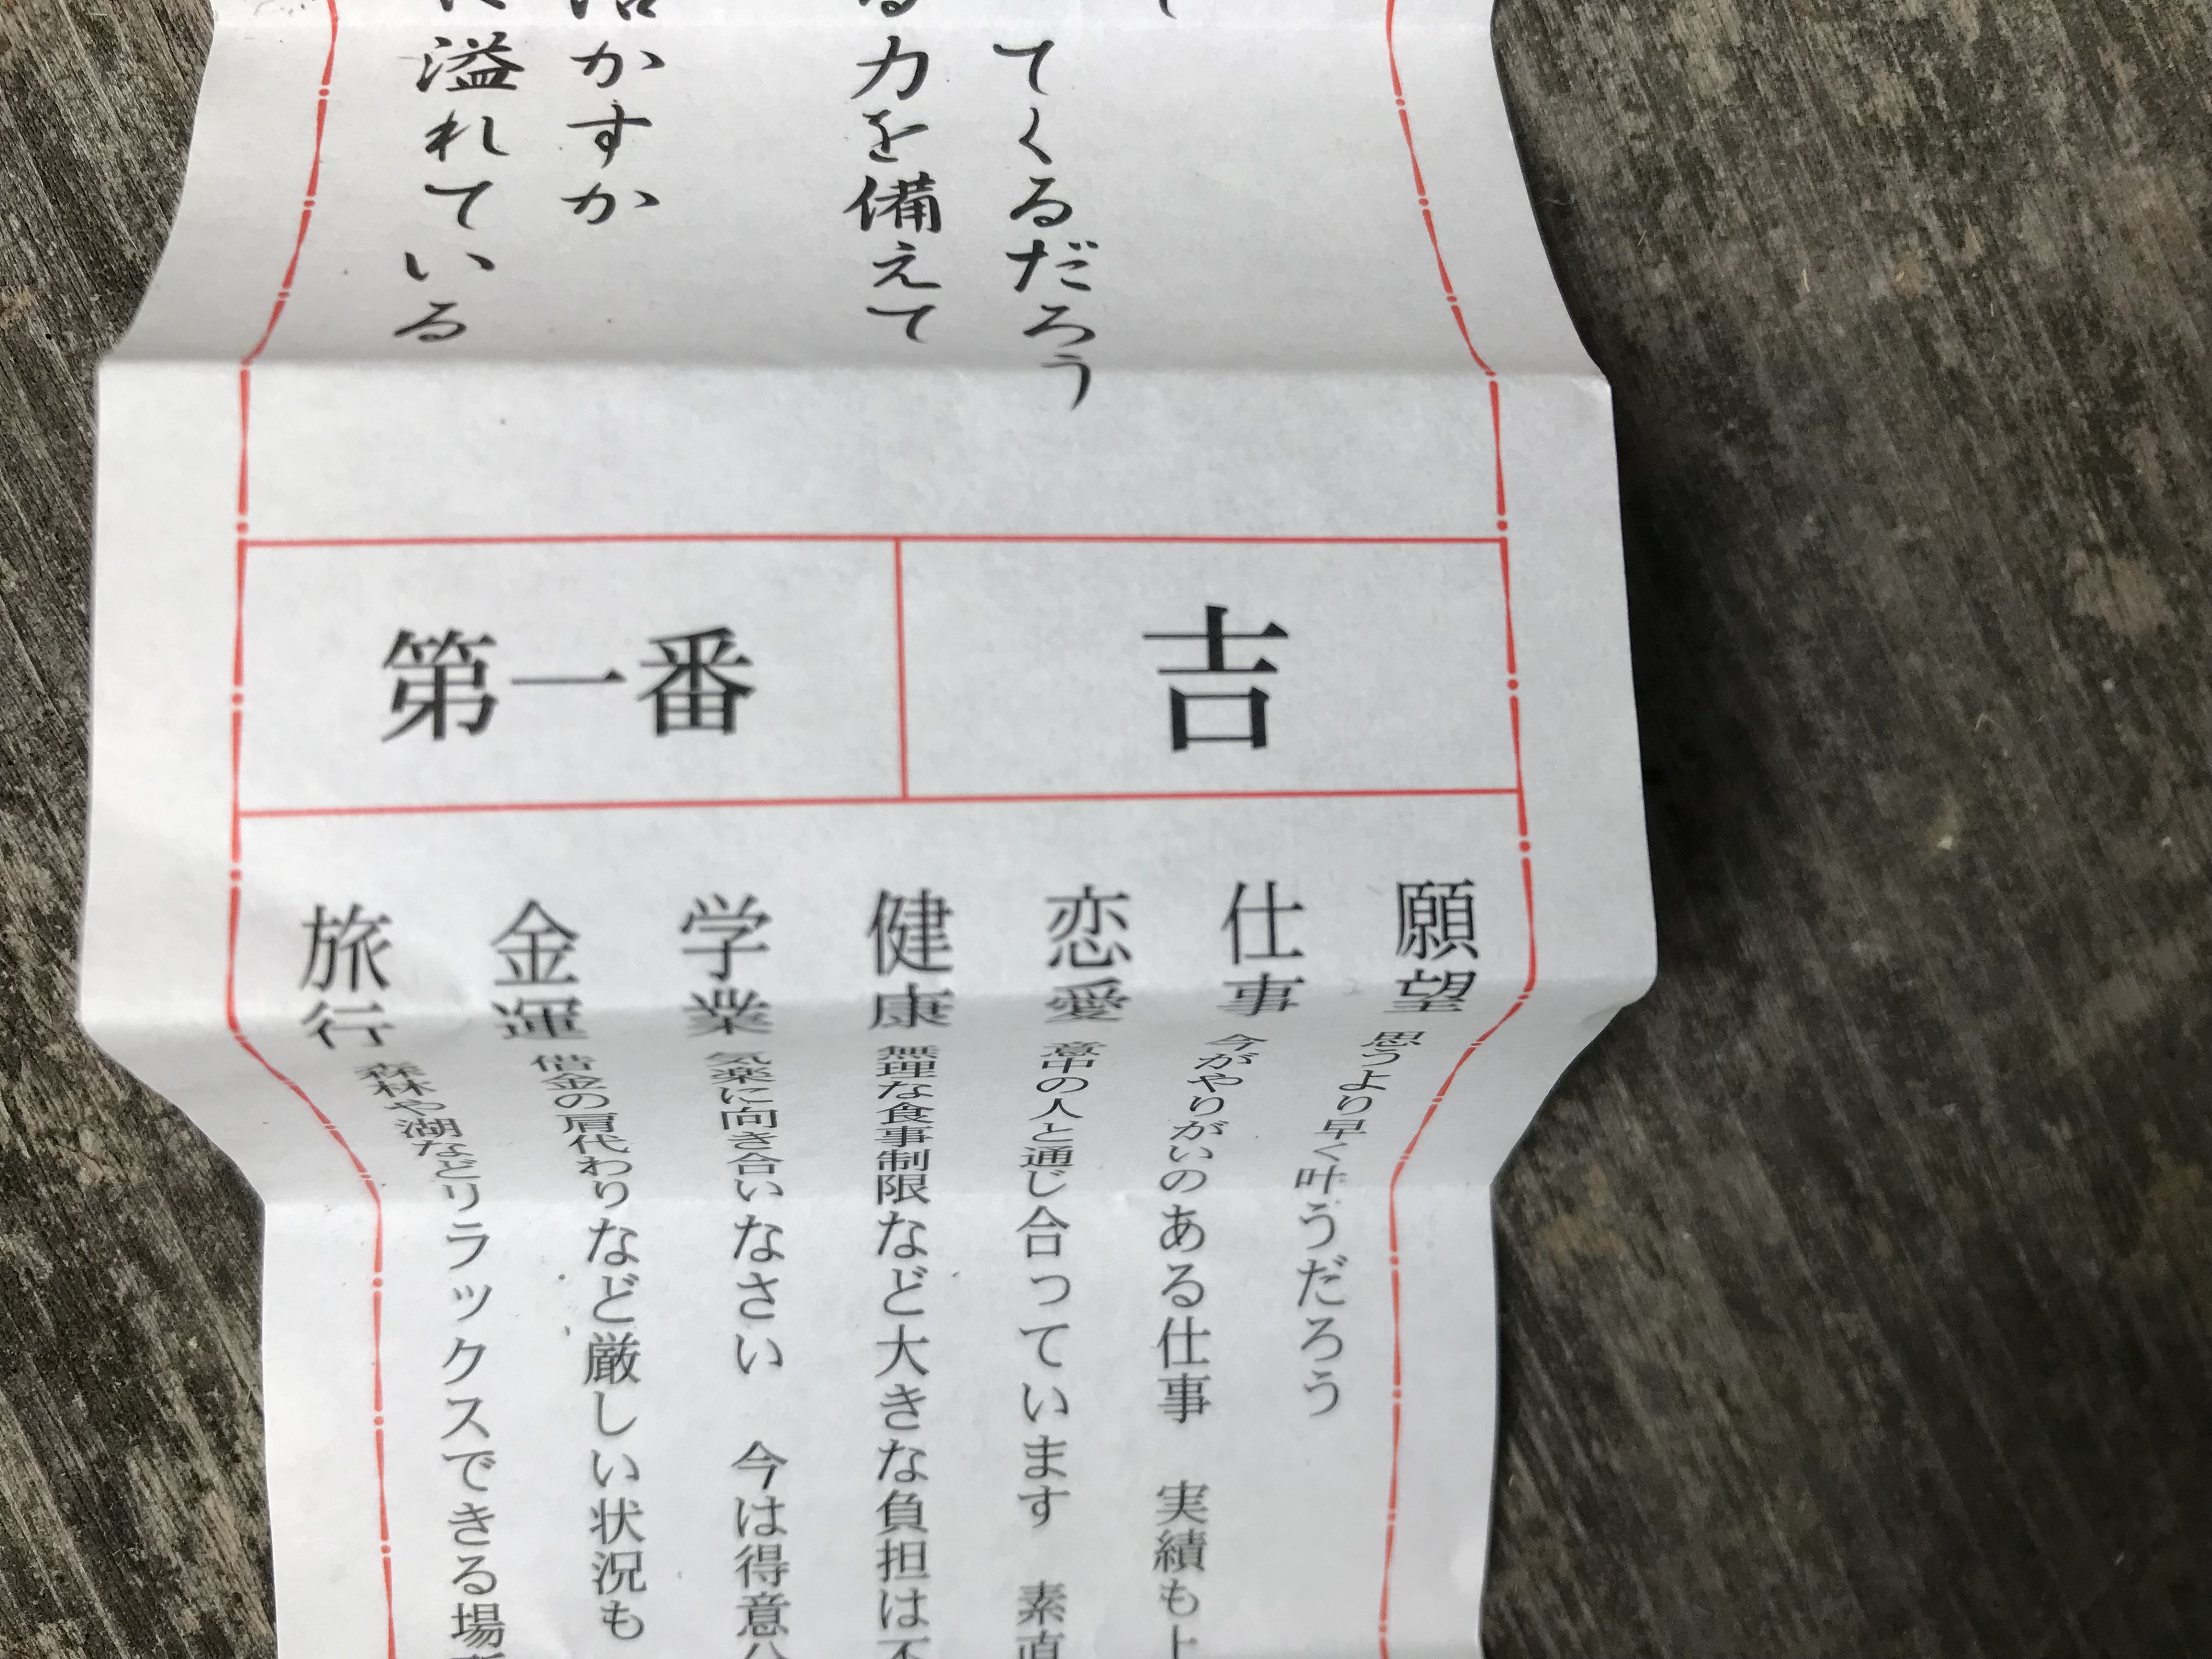 てくるだろう
る力を備えて
かすか
溢れている
吉
第一番
願望 思うより早く叶うだろう
仕事 今がやりがいのある仕事 実績も上
恋愛 意中の人と通じ合っています 素直
健康 無理な食事制限など大きな負担は不
学業 気楽に向き合いなさい 今は得意分
金運 借金の肩代わりなど厳しい状況も
旅行 森林や湖などリラックスできる場